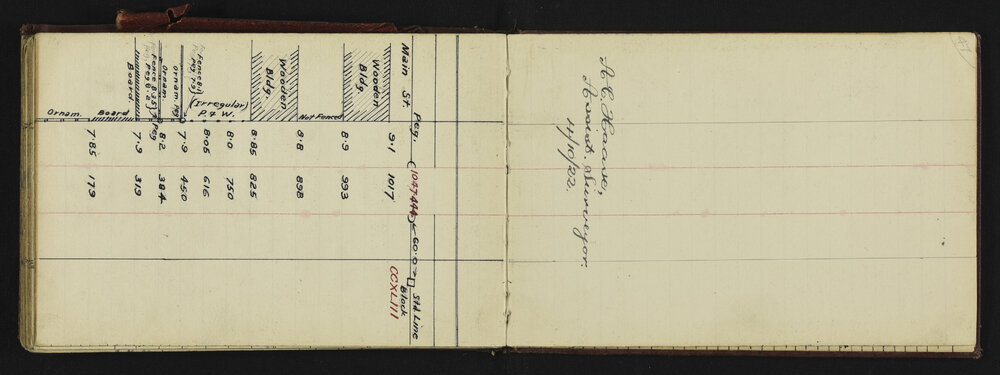 Main St. Peg. (1047.444) 60.0 Std. Line
Block
CCXLIII
Wooden
Bldg. 9.1 1017
8.9 993
Not Fenced
8.8 898
Wooden
Bldg. 8.85 825
8.0 750
(Irregular)
P. & W. 8.05 616
Fence 8.1
Peg 7.9
Ornam. Peg 7.9 450
Ornam. Peg 8.2 384
Fence 8.35
Peg 8.2
Board 7.9 319
Board
Ornam. 7.85 179
Assist. Surveyor.
11/10/22